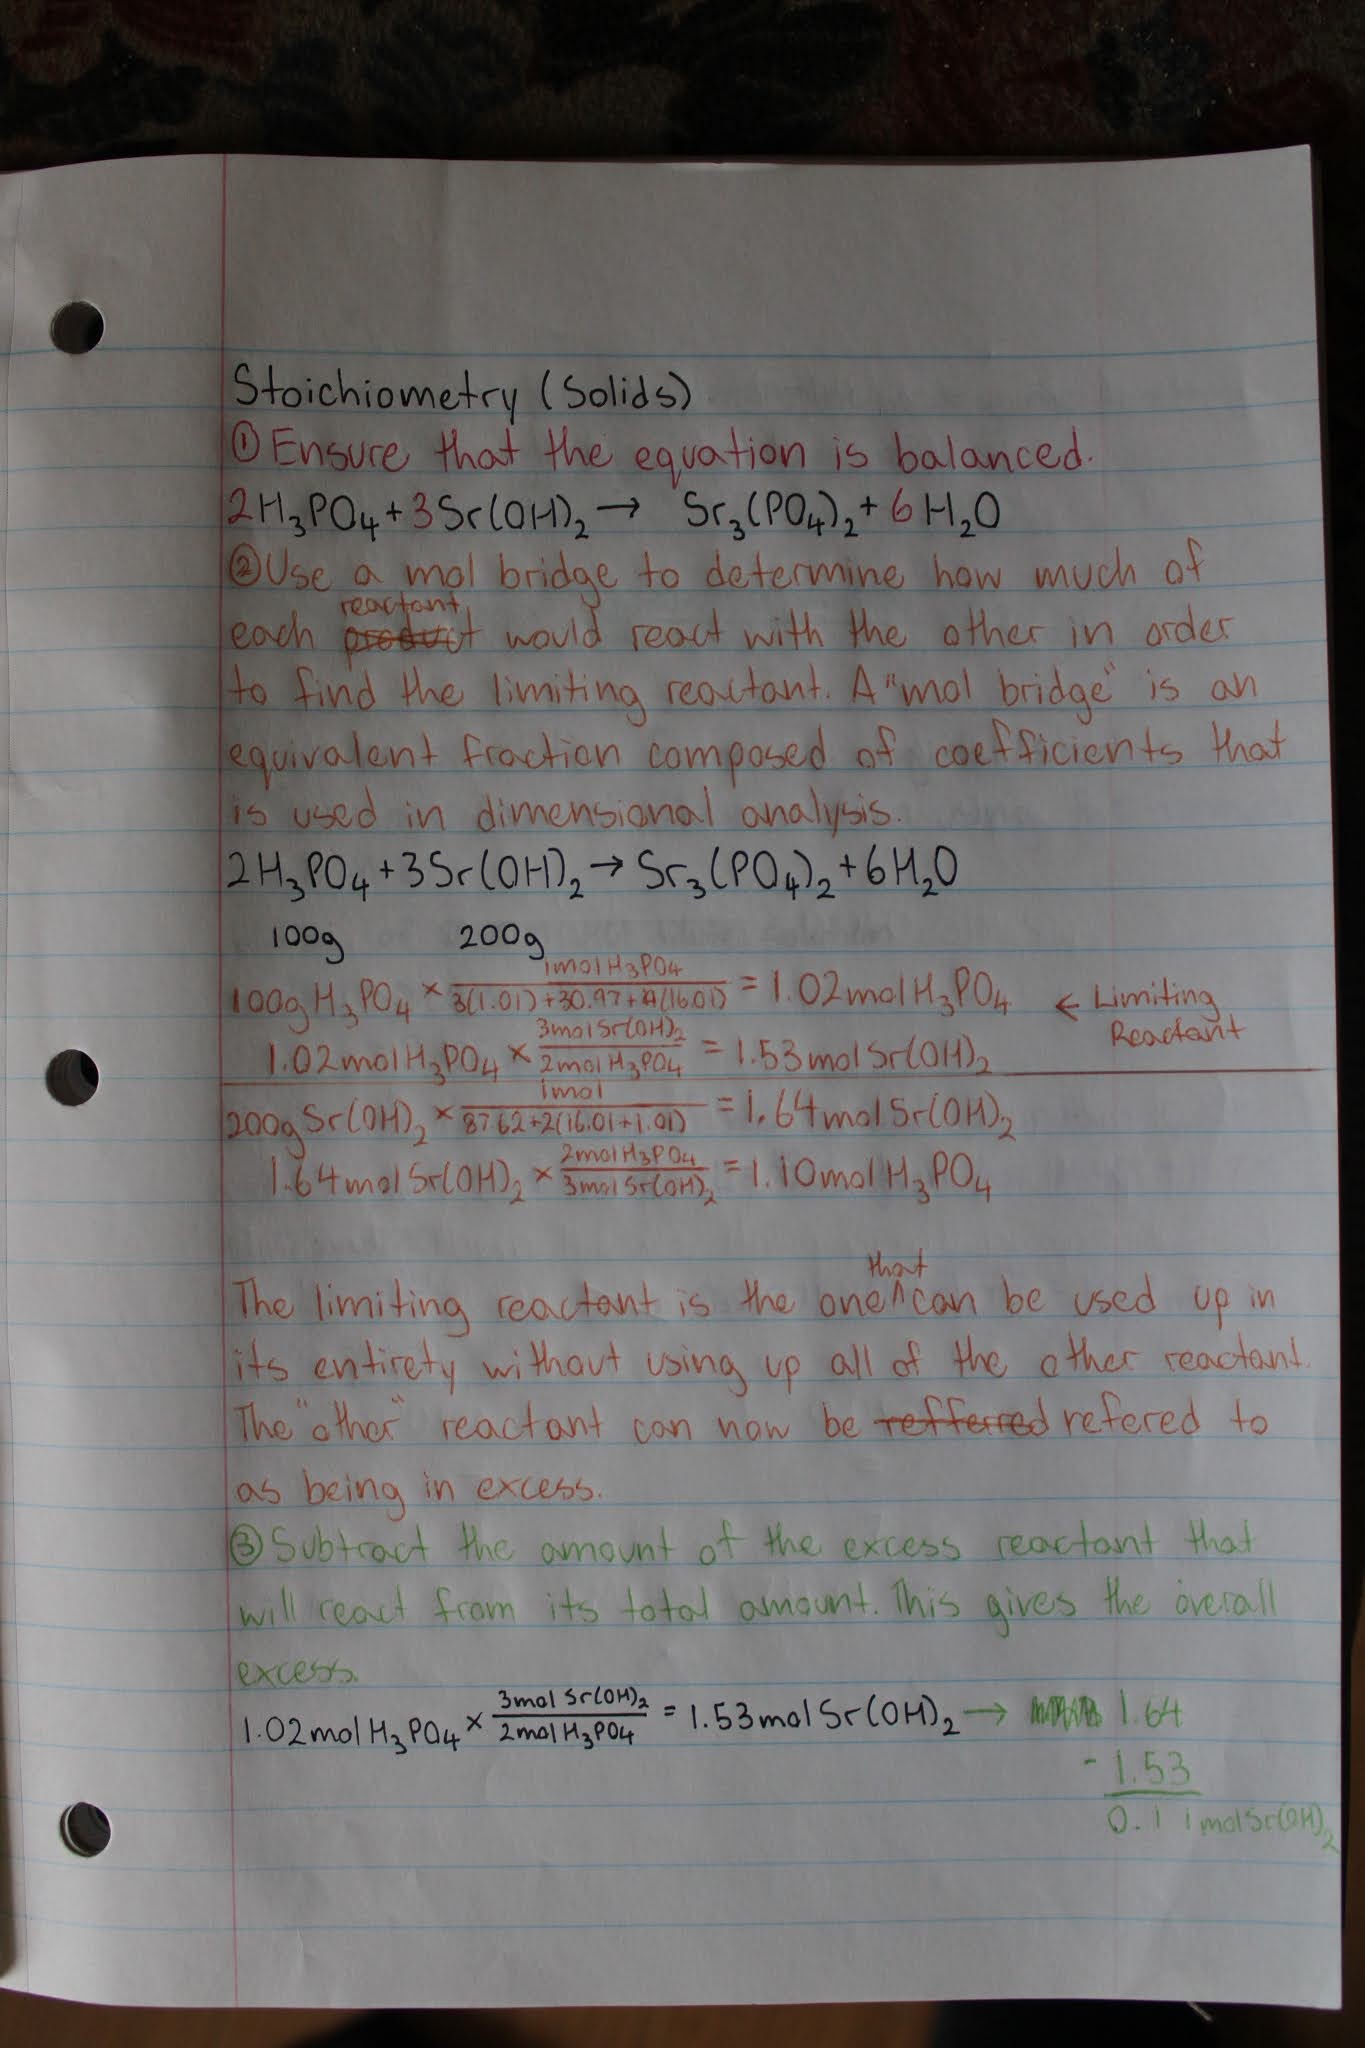 Stoichiometry (Solids)
① Ensure that the equation is balanced.
2H₃PO₄ + 3Sr(OH)₂ → Sr₃(PO₄)₂ + 6H₂O
② Use a mol bridge to determine how much of
reactant
each product would react with the other in order
to find the limiting reactant. A "mol bridge" is an
equivalent fraction composed of coefficients that
is used in dimensional analysis.
2H₃PO₄ + 3Sr(OH)₂ → Sr₃(PO₄)₂ + 6H₂O
100g 200g
1molH₃PO₄
100g H₃PO₄ × 3(1.01)+30.97+4(16.01) = 1.02molH₃PO₄ ← Limiting
Reactant
3molSr(OH)₂
1.02molH₃PO₄ × 2molH₃PO₄ = 1.53molSr(OH)₂
1mol
200g Sr(OH)₂ × 87.62+2(16.01+1.01) = 1.64molSr(OH)₂
2molH₃PO₄
1.64molSr(OH)₂ × 3molSr(OH)₂ = 1.10molH₃PO₄
that
The limiting reactant is the one ^ can be used up in
its entirety without using up all of the other reactant.
The "other" reactant can now be refferred refered to
as being in excess.
③ Subtract the amount of the excess reactant that
will react from its total amount. This gives the overall
excess.
3mol Sr(OH)₂
1.02molH₃PO₄ × 2molH₃PO₄ = 1.53molSr(OH)₂ → 1.64
- 1.53
0.11molSr(OH)₂